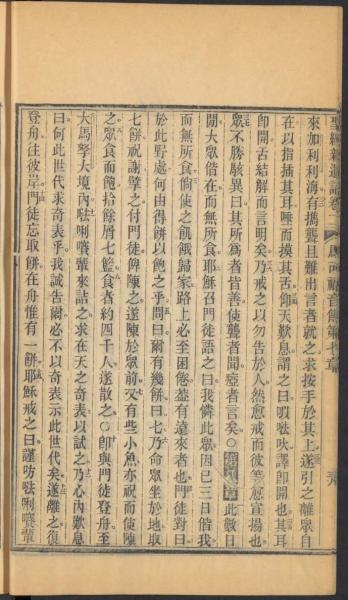 聖經新遺詔卷二 馬可福音傳第七章
來加利利海有攜聾且難出言者就之求按手於其上遂引之離眾自
在以指插其耳唾而摸其舌仰天歎息謂之曰㕹𠯈吠譯卽開也其耳
卽開舌結解而言明矣乃戒之以勿告於人然愈戒而彼等愈宣揚也
眾不勝駭異曰其所爲者皆善使聾者聞瘂者言矣○ 此數日
間大眾偕在而無所食耶穌召門徒語之曰我憐此眾因已三日偕我
而無所食倘使之飢餓歸家路上必至困倦蓋有遠來者也門徒對曰
於此野處何由得餅以飽之乎問曰爾有幾餅曰七乃命眾坐於地取
七餅祝謝擘之付門徒俾陳之遂陳於眾前又有些小魚亦祝而使陳
之眾食而飽拾餘屑七籃食者約四千人遂散之○卽與門徒登舟至
大馬拏大境內𠵽唎㘔輩來詰之求在天之奇表以試之乃心內歎息
曰何此世代求奇表乎我誠告爾必不以奇表示此世代矣遂離之復
登舟往彼岸門徒忘取餅在舟惟有一餅耶穌戒之曰謹防𠵽唎㘔輩